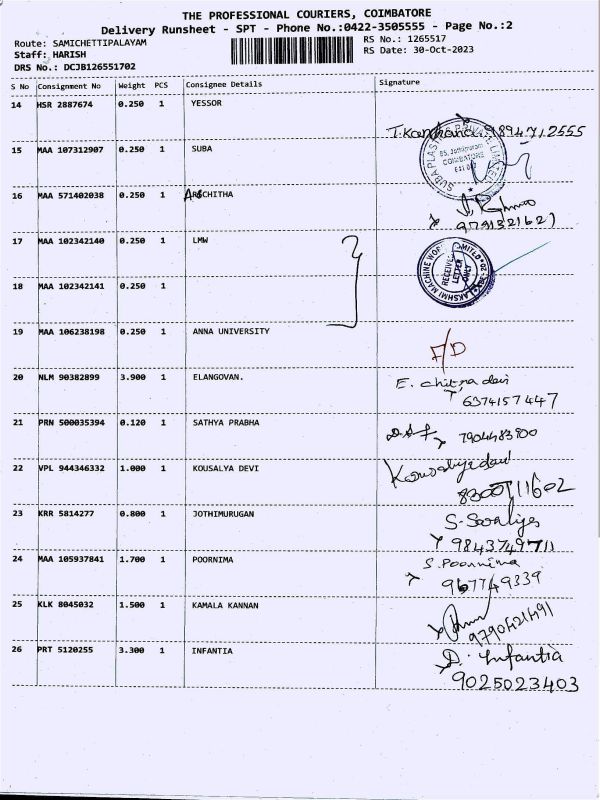 THE PROFESSIONAL COURIERS, COIMBATORE
Delivery Runsheet - SPT - Phone No.:0422-3505555 - Page No.:2
Route: SAMICHETTIPALAYAM RS No.: 1265517
Staff: HARISH RS Date: 30-Oct-2023
DRS No.: DCJB126551702
S No Consignment No Weight PCS Consignee Details Signature
14 HSR 2887674 0.250 1 YESSOR
9894712555
15 MAA 107312907 0.250 1 SUBA
85, Jothipuram
COIMBATORE
16 MAA 571402038 0.250 1 ARCHITHA
17 MAA 102342140 0.250 1 LMW
LAKSHMI MACHINE WORKS LIMITED
RECEIVED
LETTER
ONLY
18 MAA 102342141 0.250 1
19 MAA 106238198 0.250 1 ANNA UNIVERSITY
F/D
20 NLM 90382899 3.900 1 ELANGOVAN.
E. chitra devi
6374157447
21 PRN 500035394 0.120 1 SATHYA PRABHA
22 VPL 944346332 1.000 1 KOUSALYA DEVI
Kousalyadevi
23 KRR 5814277 0.800 1 JOTHIMURUGAN
24 MAA 105937841 1.700 1 POORNIMA
S. Poornima
25 KLK 8045032 1.500 1 KAMALA KANNAN
9790421491
26 PRT 5120255 3.300 1 INFANTIA
D. Infantia
9025023403